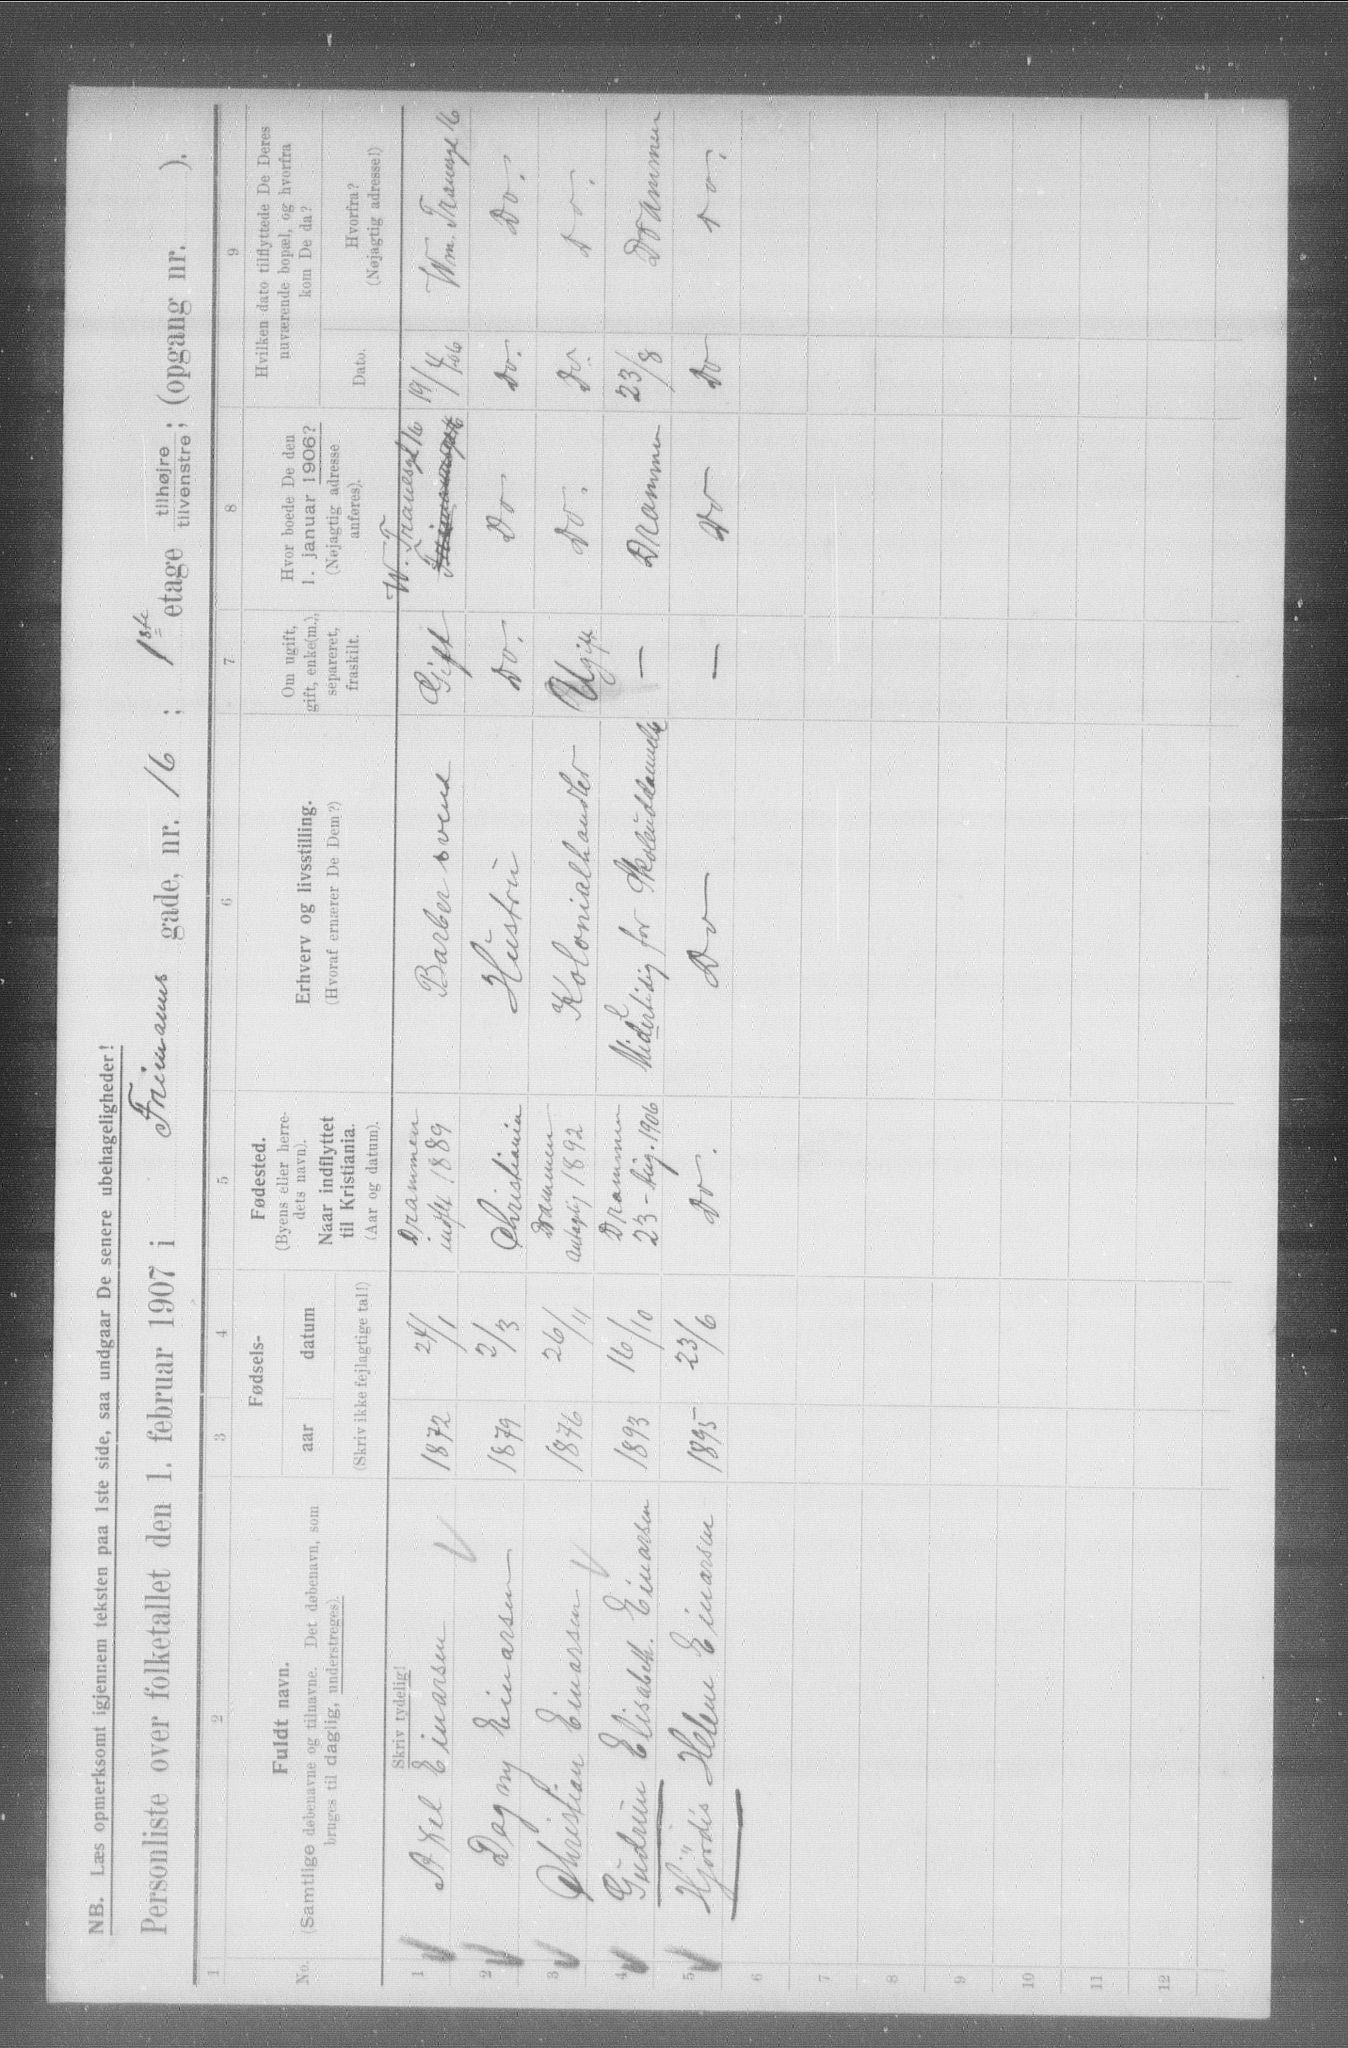 NB. Læs opmerksomt igjennem teksten paa 1ste side, saa undgaar De senere ubehageligheder!
Personliste over folketallet den 1. februar 1907 i Frimanns gade, nr. 16 ; 1ste etage tilhøjre tilvenstre; (opgang nr. ).
1 2 3 4 5 6 7 8 9
No.
Fuldt navn.
(Samtlige døbenavne og tilnavne. Det døbenavn, som
bruges til daglig, understreges).
Fødsels-
aar datum
(Skriv ikke fejlagtige tal!)
Fødested.
(Byens eller herre-
dets navn).
Naar indflyttet
til Kristiania.
(Aar og datum).
Erhverv og livsstilling.
(Hvoraf ernærer De Dem?)
Om ugift,
gift, enke(m.),
separeret,
fraskilt.
Hvor boede De den
1. januar 1906?
(Nøjagtig adresse
anføres).
Hvilken dato tilflyttede De Deres
nuværende bopæl, og hvorfra
kom De da?
Dato.
Hvorfra?
(Nøjagtig adresse!)
Skriv tydelig!
1 Axel Einarsen 1872 24/1 Drammen
indfl 1889 Barbersvend Gift W. Tranesgt 16 19/4 1906 Wm. Tranesgt 16
2 Dagny Einarsen 1879 2/3 Christiania Hustru Do. Do Do. Do.
3 Christian Einarsen 1876 26/11 Drammen
1892 Kolonialhandler Ugift Do. Do. Do.
4 Gudrun Elisabeth. Einarsen 1893 16/10 Drammen
23 - Aug. 1906 Miderlidig for Skoleuddannelse — Drammen 23/8 Drammen
5 Hjördis Helene Einarsen 1895 23/6 Do. Do — Do Do Do.
6
7
8
9
10
11
12